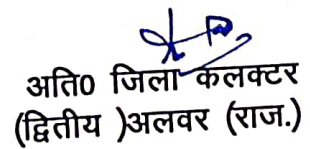 अति० जिला कलक्टर
(द्वितीय )अलवर (राज.)